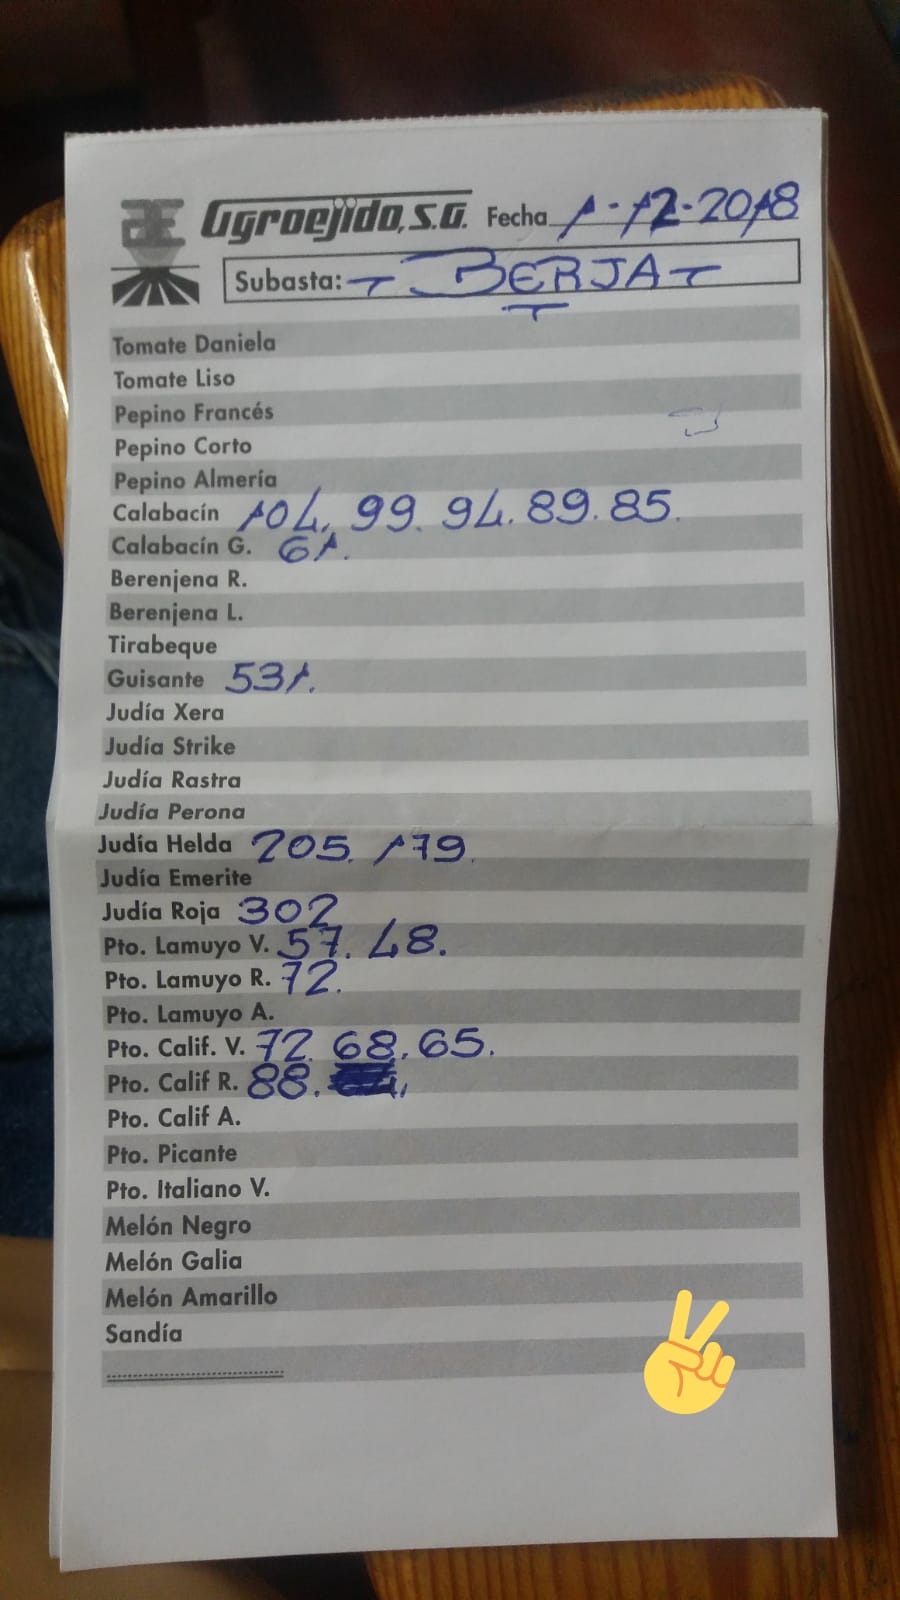 Agroejido, S.G. Fecha 1-12-2018
Subasta: - BERJA -
Tomate Daniela
Tomate Liso
Pepino Francés
Pepino Corto
Pepino Almería
Calabacín 104. 99. 94. 89. 85.
Calabacín G. 61.
Berenjena R.
Berenjena L.
Tirabeque
Guisante 531.
Judía Xera
Judía Strike
Judía Rastra
Judía Perona
Judía Helda 205. 179.
Judía Emerite
Judía Roja 302
Pto. Lamuyo V. 57. 48.
Pto. Lamuyo R. 72.
Pto. Lamuyo A.
Pto. Calif. V. 72. 68. 65.
Pto. Calif R. 88.
Pto. Calif A.
Pto. Picante
Pto. Italiano V.
Melón Negro
Melón Galia
Melón Amarillo
Sandía